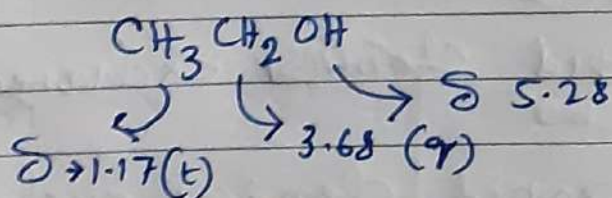 CH3 CH2 OH
δ 5.28
δ→1.17(t) 3.68 (q)